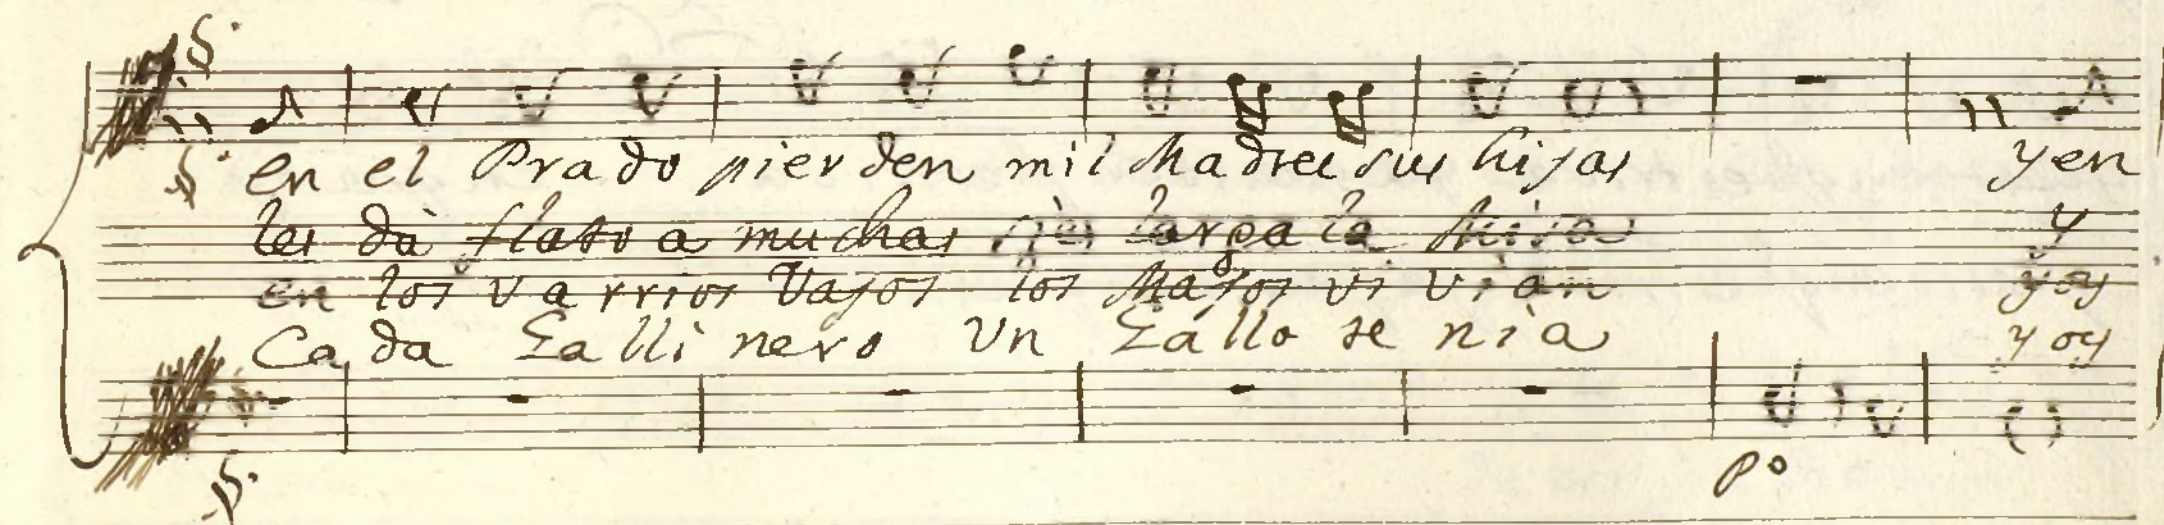 en el Prado pierden mil Madres sus hijas yen
les dà flato a muchas si es larga la Misa y
en los varrios Vajos los Majos vivian y oy
Cada Gallinero Un Gallo tenia y oy
po